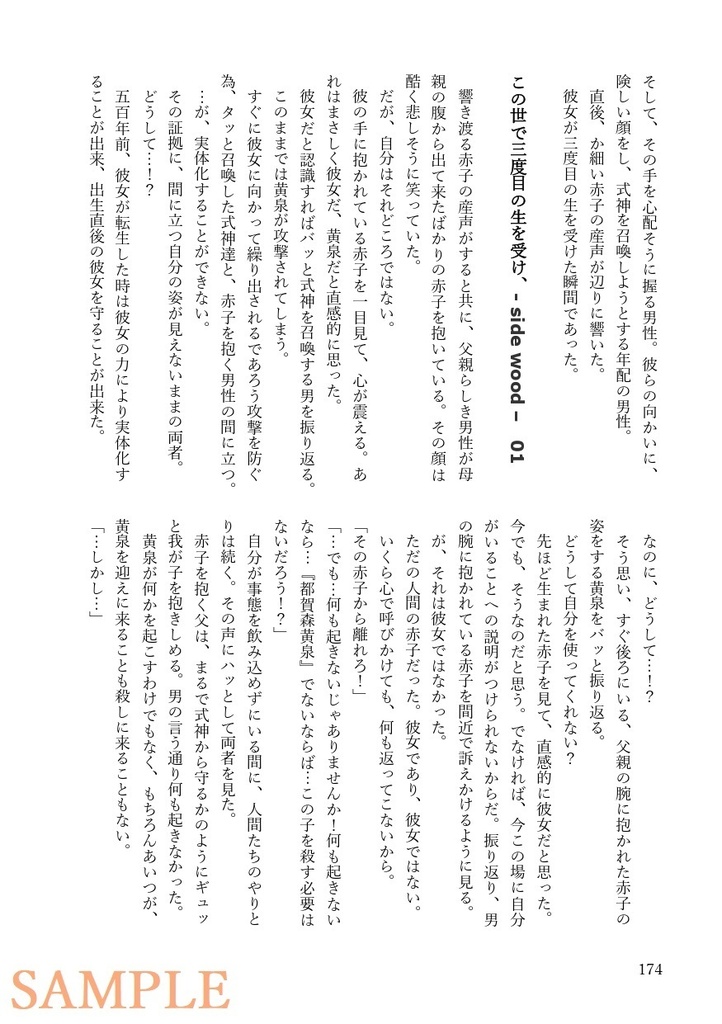 そして、その手を心配そうに握る男性。彼らの向かいに、
険しい顔をし、式神を召喚しようとする年配の男性。
直後、か細い赤子の産声が辺りに響いた。
彼女が三度目の生を受けた瞬間であった。
この世で三度目の生を受け、- side wood - 01
響き渡る赤子の産声がすると共に、父親らしき男性が母
親の腹から出て来たばかりの赤子を抱いている。その顔は
酷く悲しそうに笑っていた。
だが、自分はそれどころではない。
彼の手に抱かれている赤子を一目見て、心が震える。あ
れはまさしく彼女だ、黄泉だと直感的に思った。
彼女だと認識すればバッと式神を召喚する男を振り返る。
このままでは黄泉が攻撃されてしまう。
すぐに彼女に向かって繰り出されるであろう攻撃を防ぐ
為、タッと召喚した式神達と、赤子を抱く男性の間に立つ。
…が、実体化することができない。
その証拠に、間に立つ自分の姿が見えないままの両者。
どうして…!?
五百年前、彼女が転生した時は彼女の力により実体化す
ることが出来、出生直後の彼女を守ることが出来た。
なのに、どうして…!?
そう思い、すぐ後ろにいる、父親の腕に抱かれた赤子の
姿をする黄泉をバッと振り返る。
どうして自分を使ってくれない?
先ほど生まれた赤子を見て、直感的に彼女だと思った。
今でも、そうなのだと思う。でなければ、今この場に自分
がいることへの説明がつけられないからだ。振り返り、男
の腕に抱かれている赤子を間近で訴えかけるように見る。
が、それは彼女ではなかった。
ただの人間の赤子だった。彼女であり、彼女ではない。
いくら心で呼びかけても、何も返ってこないから。
「その赤子から離れろ!」
「…でも…何も起きないじゃありませんか!何も起きない
なら…『都賀森黄泉』でないならば…この子を殺す必要は
ないだろう!?」
自分が事態を飲み込めずにいる間に、人間たちのやりと
りは続く。その声にハッとして両者を見た。
赤子を抱く父は、まるで式神から守るかのようにギュッ
と我が子を抱きしめる。男の言う通り何も起きなかった。
黄泉が何かを起こすわけでもなく、もちろんあいつが、
黄泉を迎えに来ることも殺しに来ることもない。
「…しかし…」
174
SAMPLE